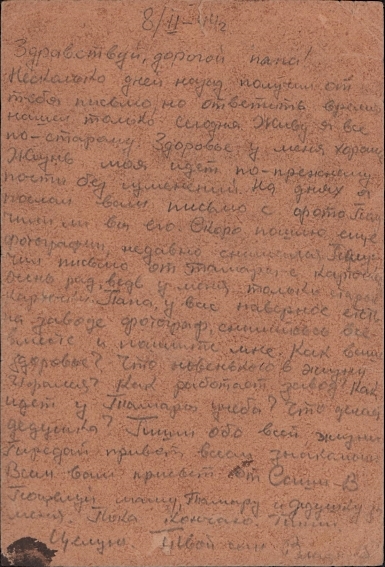 8/II-
Здравствуй, дорогой папа!
Несколько дней назад получил от
тебя письмо, но ответить время
нашел только сегодня. Живу я все
по-старому. Здоровье у меня хорош
Жизнь моя идет по-прежнему
почти без изменений. На днях я
послал вам письмо с фото. Пол
чили ли вы его. Скоро пошлю еще
фотографии, недавно снимался. Полу
чил письмо от Тамары с карточк
очень рад, ведь у меня только
карточки. Папа, у вас наверное есть
на заводе фотограф, снимитесь все
вместе и пошлите мне. Как ваше
здоровье? Что новенького в жизни
Как работает завод. Как
идет у Тамары учеба? Что делает
дедушка? Пиши обо всей жизни
Передай привет всем знакомым
Всем вам привет от Саши В
Поцелуй маму, Тамару и дедушку за
меня. Пока кончаю. Пиши
Целую Твой сын